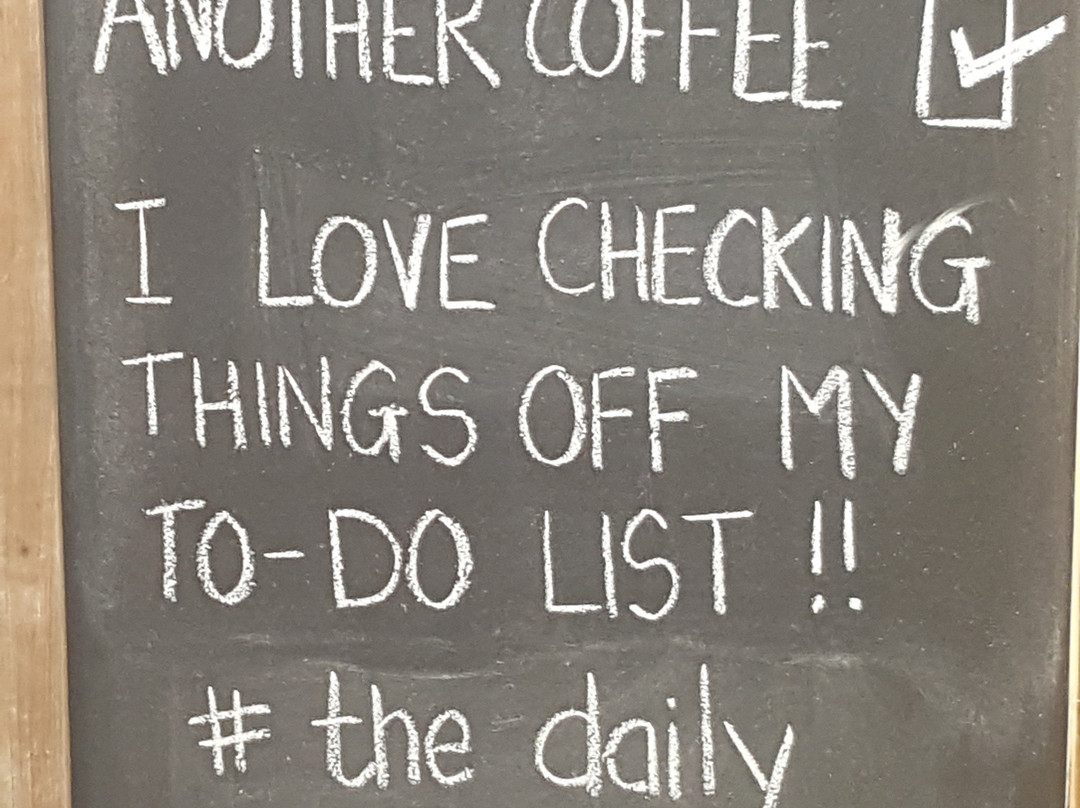 ANOTHER COFFEE ☑
I LOVE CHECKING
THINGS OFF MY
TO-DO LIST !!
# the daily